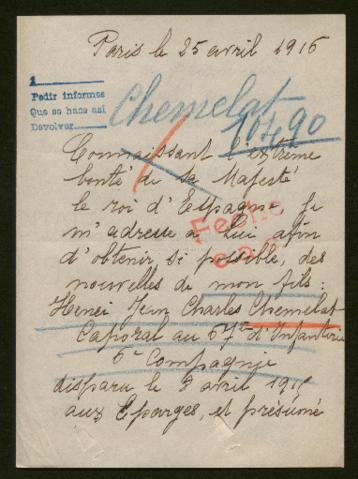 Paris le 25 avril 1916
1
Pedir informes
Que se haga así
Devolver
Chemelat
107,90
Connaissant l'extrême
bonté de sa Majesté
le roi d'Espagne, je
m'adresse à Lui afin
Hecho
d'obtenir, si possible, des
nouvelles de mon fils :
Henri Jean Charles Chemelat
Caporal au 67e d'Infanterie
6e Compagnie
disparu le 9 avril 1915
aux Eparges, et présumé